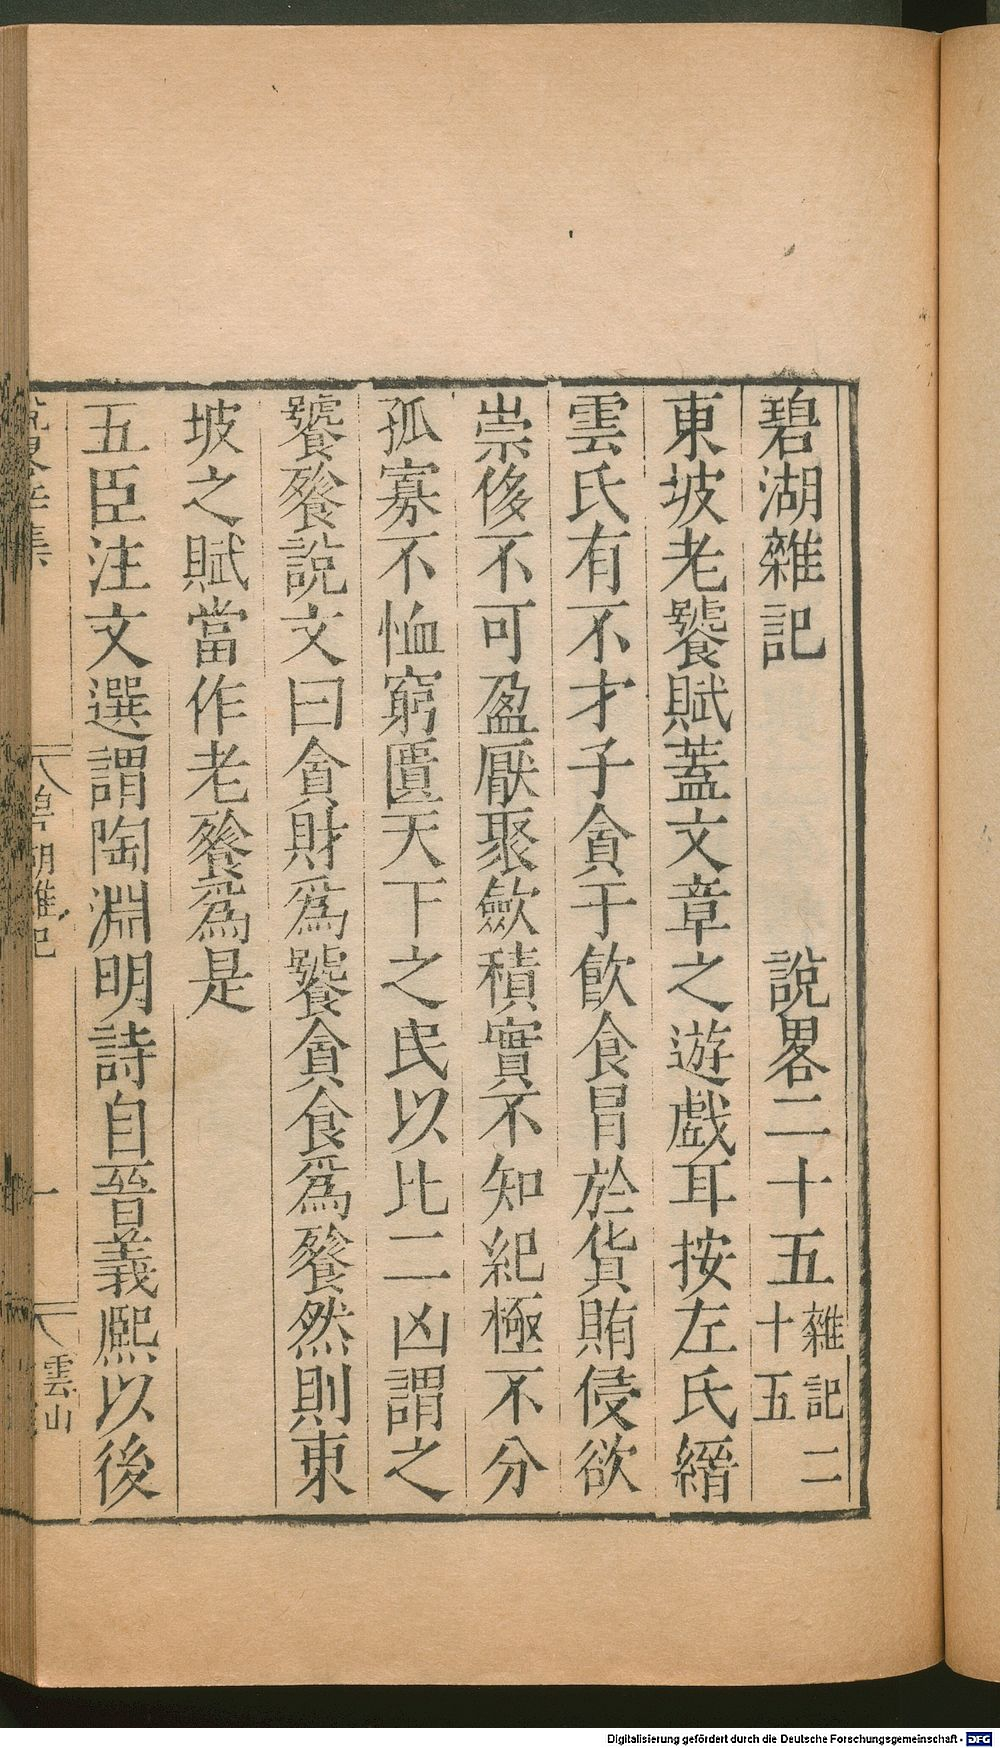 碧湖雜記 說畧二十五 雜記二十五
東坡老饕賦蓋文章之遊戲耳按左氏縉
雲氏有不才子貪于飲食冒於貨賄侵欲
崇侈不可盈厭聚斂積實不知紀極不分
孤寡不恤窮匱天下之民以比二凶謂之
饕餮說文曰貪財爲饕貪食爲餮然則東
坡之賦當作老餮爲是
五臣注文選謂陶淵明詩自晉義熙以後
湖雜記 一 雲山
Digitalisierung gefördert durch die Deutsche Forschungsgemeinschaft - DFG